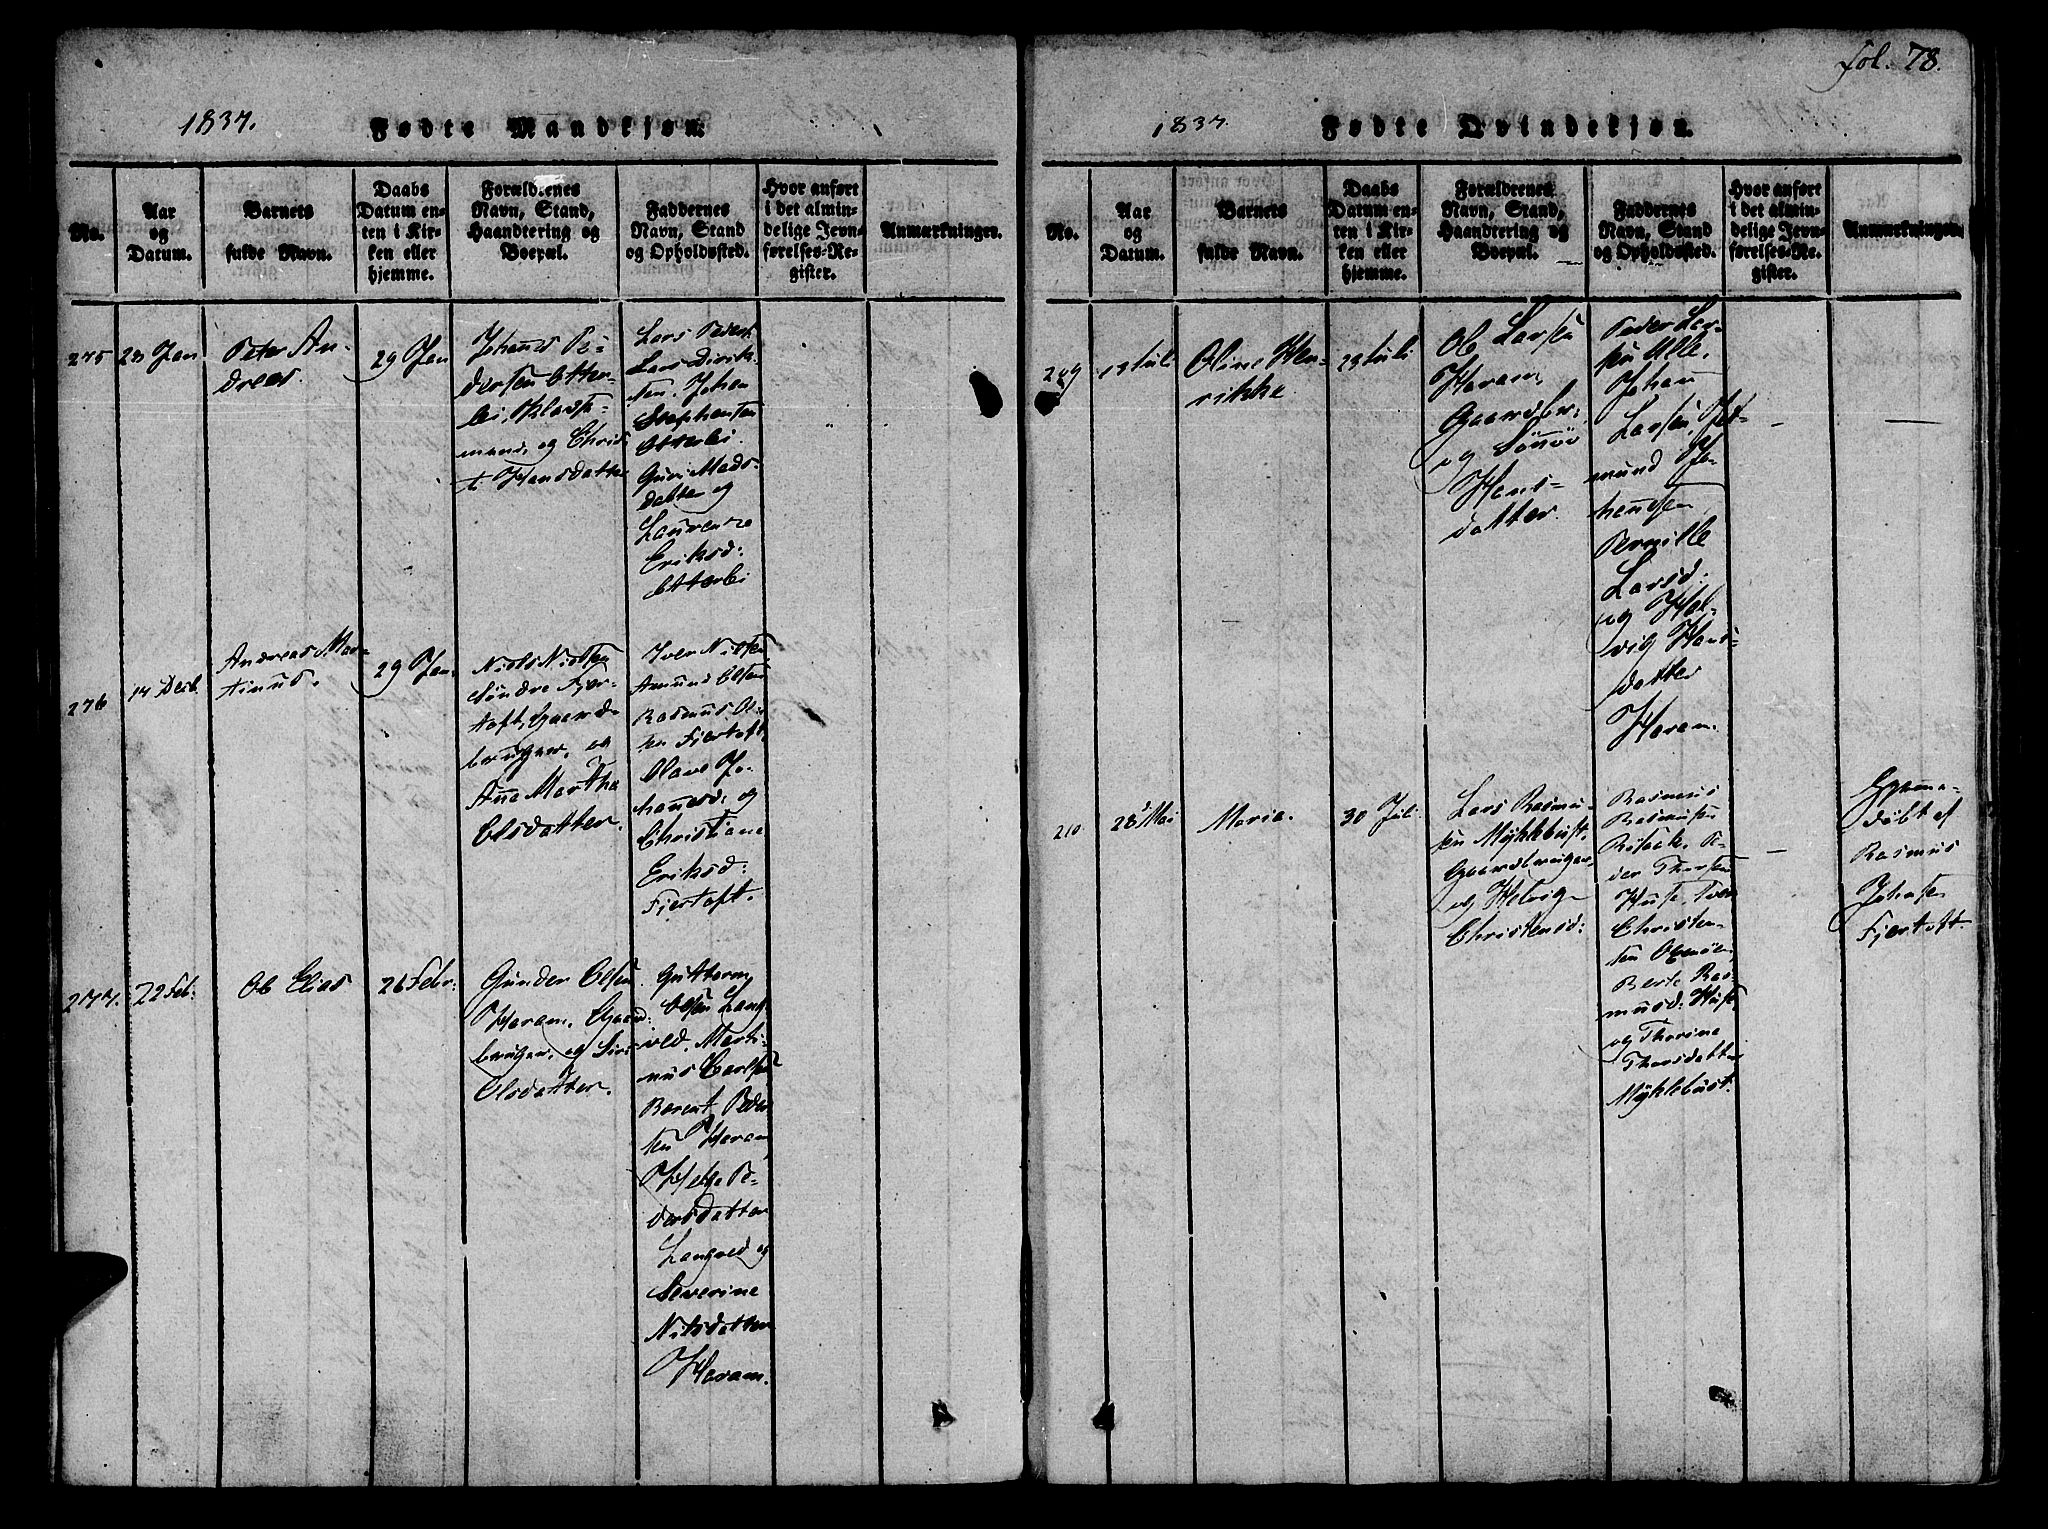 fol. 78.
1837.
Fødte Mandkjøn.
No.
Aar
og
Datum.
Barnets
fulde Navn.
Daabs
Datum en-
ten i Kir-
ken eller
hjemme.
Forældrenes
Navn, Stand,
Haandtering og
Boepæl.
Faddernes
Navn, Stand
og Opholdssted.
Hvor anført
i det almin-
delige Jevn-
førelses-Re-
gister.
Anmærkninger.
275
23 Jan
Peter An-
dreas.
29 Jan
Johanes Pe-
dersen Otter-
lei,
mand, og Chris
Hansdatter
Lars Peders.
Lars Dirik-
sen, Johan
Stephensen
Otterlei.
Guri Mads-
datter og
Laurense
Eriksd:
Otterlei
276
14 Decb.
Andreas Mar-
tinus.
29 Jan.
Niels Nielsen
Søndre Fjør-
toft, Gaard-
bruger, og
Ane Martha
Olsdatter.
Iver Nielsen
Amund Olsen
Rasmus Ol-
sen Fjertoft,
Olave Jo-
hanesd. og
Christiane
Eriksd:
Fjertoft.
277.
22 Feb:
Ole Elias
26 Febr:
Gunder Olsen
Haram, Gaard-
bruger, og Siri
Olsdatter.
Guttorm
Olsen Lang-
ved, Marti-
nus Carlsen
Berent Peder-
sen Haram
Helge Pe-
dersdatter
Langved og
Severine
Nilsdatter
Haram.
1837.
Fødte Qvindekjøn.
No.
Aar
og
Datum.
Barnets
fulde Navn.
Daabs
Datum en-
ten i Kir-
ken eller
hjemme.
Forældrenes
Navn, Stand,
Haandtering og
Boepæl.
Faddernes
Navn, Stand
og Opholdssted.
Hvor anført
i det almin-
delige Jevn-
førelses-Re-
gister.
Anmærkninger.
209
Juli
Oline Hen-
rikke
23 Juli
Ole Larsen
Haram,
Gaardbr:
og Sønøv
Hans-
datter.
Peder Lar-
sen Ulle,
Johan
Larsen,
mund Jo-
hansen
Pernille
Larsd:
og Hel-
vig Hans-
datter
Haram.
210
28 Mai
Maria.
30 Juli
Lars Rasmu-
sen Myklebust,
Gaardbruger,
og Helvig
Christensd:
Rasmus
Rasmusen
Røsok, Pe-
der Thorsen
Huse, Iver
Christen-
sen
Berte Ras-
musd: Huse
og Thorine
Thorsdatter
Myklebust.
Hjemme-
døbt af
Rasmus
Johansen
Fjertoft.